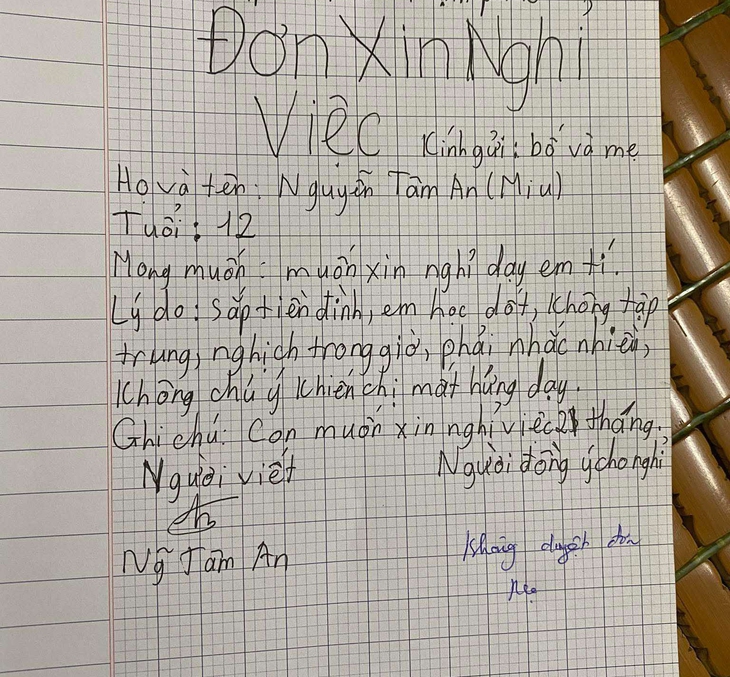 Đơn Xin Nghỉ
Việc Kính gửi: bố và mẹ
Họ và tên: Nguyễn Tâm An (Miu)
Tuổi: 12
Mong muốn: muốn xin nghỉ dạy em tí.
Lý do: Sắp tiền đình, em học dốt, không tập
trung, nghịch trong giờ, phải nhắc nhiều,
không chú ý khiến chị mất hứng dạy.
Ghi chú: Con muốn xin nghỉ việc 21 tháng.
Người viết Người đồng ý cho nghỉ
Ng Tâm An Không duyệt đơn
Mẹ